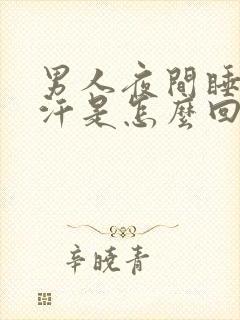 男人夜間睡
汗是怎麼回
辛曉青